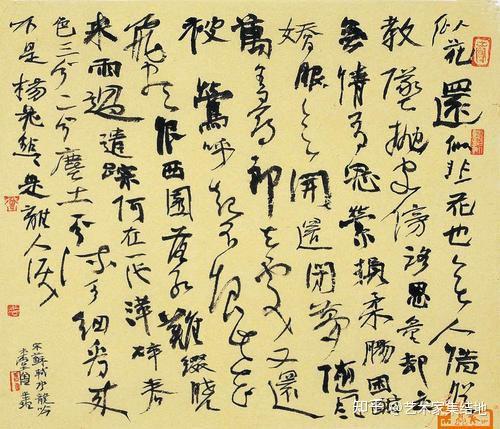 似花還似非花也無人惜從
教墜抛家傍路思量却是
無情有思縈損柔腸困酣
嬌眼欲開還閉夢隨風
萬里尋郎去處又還
被鶯呼起不恨此花
飛盡恨西園落紅難綴曉
來雨過遺蹤何在一池萍碎春
色三分二分塵土一分流水細看來
不是楊花點點是離人淚
宋蘇軾水龍吟
知乎 @艺术家集结地